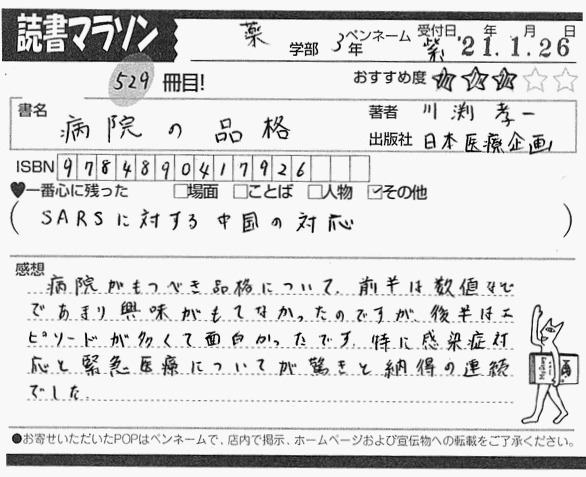 読書マラソン
薬 学部 3年 ペンネーム 紫 受付日 '21年.1月.26日
529冊目! おすすめ度 ★★★☆☆
書名 病院の品格 著者 川渕孝一
出版社 日本医療企画
ISBN 9784890417926
♥一番心に残った □場面 □ことば □人物 ☑その他
(SARSに対する中国の対応)
感想
病院がもつべき品格について、前半は数値など
であまり興味がもてなかったのですが、後半はエ
ピソードが多くて面白かったです。特に感染症対
応と緊急医療についてが驚きと納得の連続
でした。
●お寄せいただいたPOPはペンネームで、店内で掲示、ホームページおよび宣伝物への転載をご了承ください。